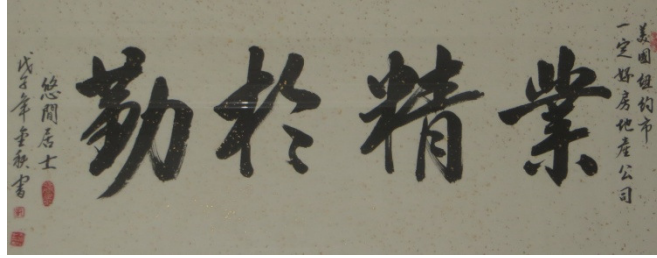 美国纽约市
一定好房地产公司
業精於勤
悠閒居士
戊子年金秋書